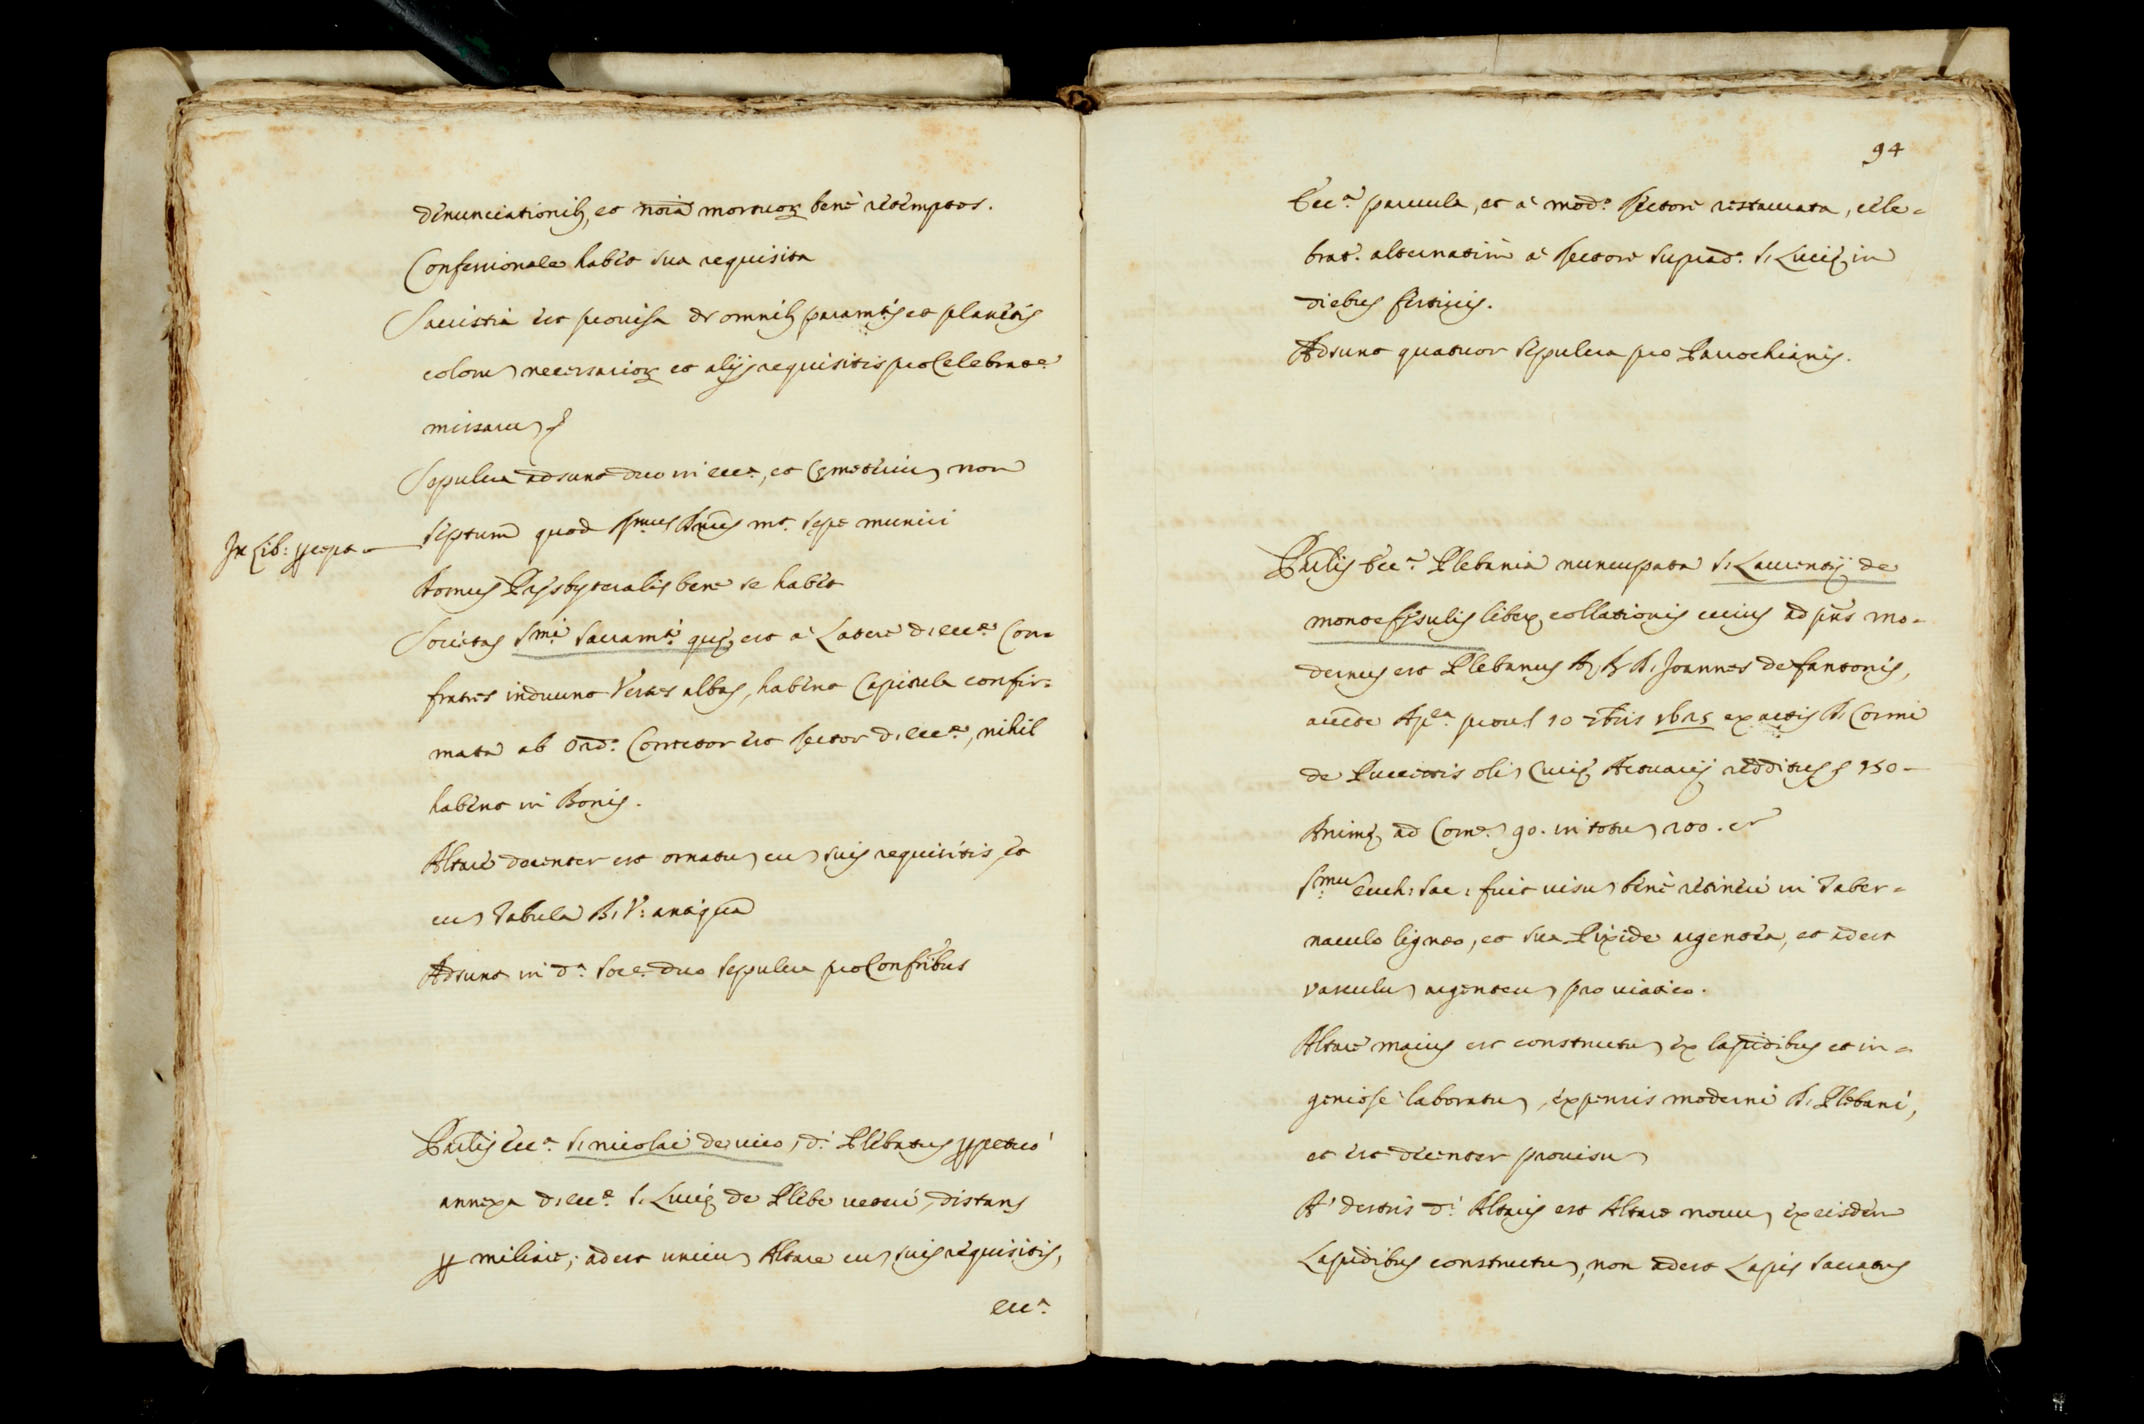 denunciationib, et noīa mortuoꝝ benè retemptos.
Confessionale habet sua requisita
Sacristia est provisa de omnib, paramtis et planetis
coloru necessarioꝝ et alijs requisitis pro Celebrate.
missaru
Sepulcra adsunt duo in ecc.ᵃ, et Cęmeteriu non
septum quod mt. sepe muniri
In Lib:
Domus Presbyteralis bene se habet
Societas Smi Sacramti quę est à Latere d. ecc.ᵃ Con=
fratres induunt Vestes albas, habent Capitula confir=
mata ab Ord.º Corrector est Rector d. ecc.ᵃ, nihil
habent in Bonis.
Altare decenter est ornatu cu suis requisitis, et
cu Tabula B. V: antiqua
Adsunt in d.ᵃ Soc.ᵉ duo Sepulcra pro Confribus
Parlis Ecc.ᵃ S. Nicolai de vico, d.ⁱ Plebatus ꝑpetuó
annexa d. ecc.ᵉ S. Lucię de Plebe veteri, distans
ꝑ miliare; adest unicu Altare cu suis requisitis,
ecc.ᵃ
94
Ecc.ᵃ parvula, et à mod.º Rectore restaurata, cele=
brat.ʳ alternatim à Rectore Suprad.º S. Lucię in
diebus festivis.
Adsunt quatuor sepulcra pro Parrochianis.
Parlis Ecc.ᵃ Plebania nuncupata S. Laurentij de
liberę collationis cuius ad pns mo=
dernus est Plebanus D. Joannes de fantonis,
10 1625 ex actis D. Cosmi
de oli Curię Actuarij redditus 150 —
Animę ad Com.ᵉ 90. in totu 200. cʳ
Smu Euch: Sac: fuit visu benè retineri in Taber=
naculo ligneo, et sua Pixide argentea, et adest
vasculu argenteu pro viatico.
Altare maius est constructu ex lapidibus et in=
geniose laboratu, expensis moderni D. Plebani,
et est decenter provisu
A' dextris d.ⁱ Altaris est Altare novu ex eisdem
Lapidibus constructu, non adest Lapis Sacratus